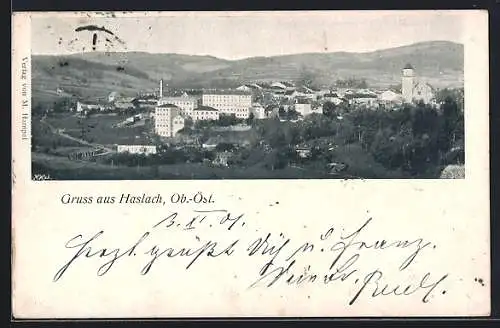 Verlag von M. Hampel
KKW.
Gruss aus Haslach, Ob.-Öst.
3. XI. 01.
Herzl. grüßt Dich u. Franz.
Dein Br.